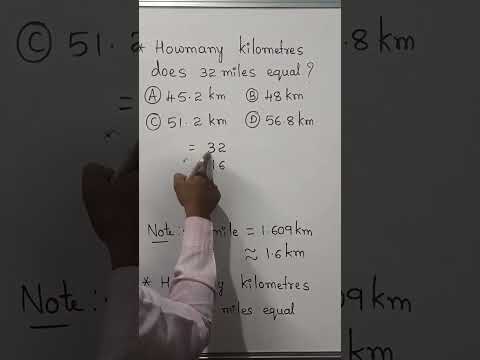 * Howmany kilometres
does 32 miles equal?
Ⓐ 45.2 km Ⓑ 48 km
Ⓒ 51.2 km Ⓓ 56.8 km
= 32
1.6
Note: mile = 1.609 km
≈ 1.6 km
* H y kilometres
miles equal